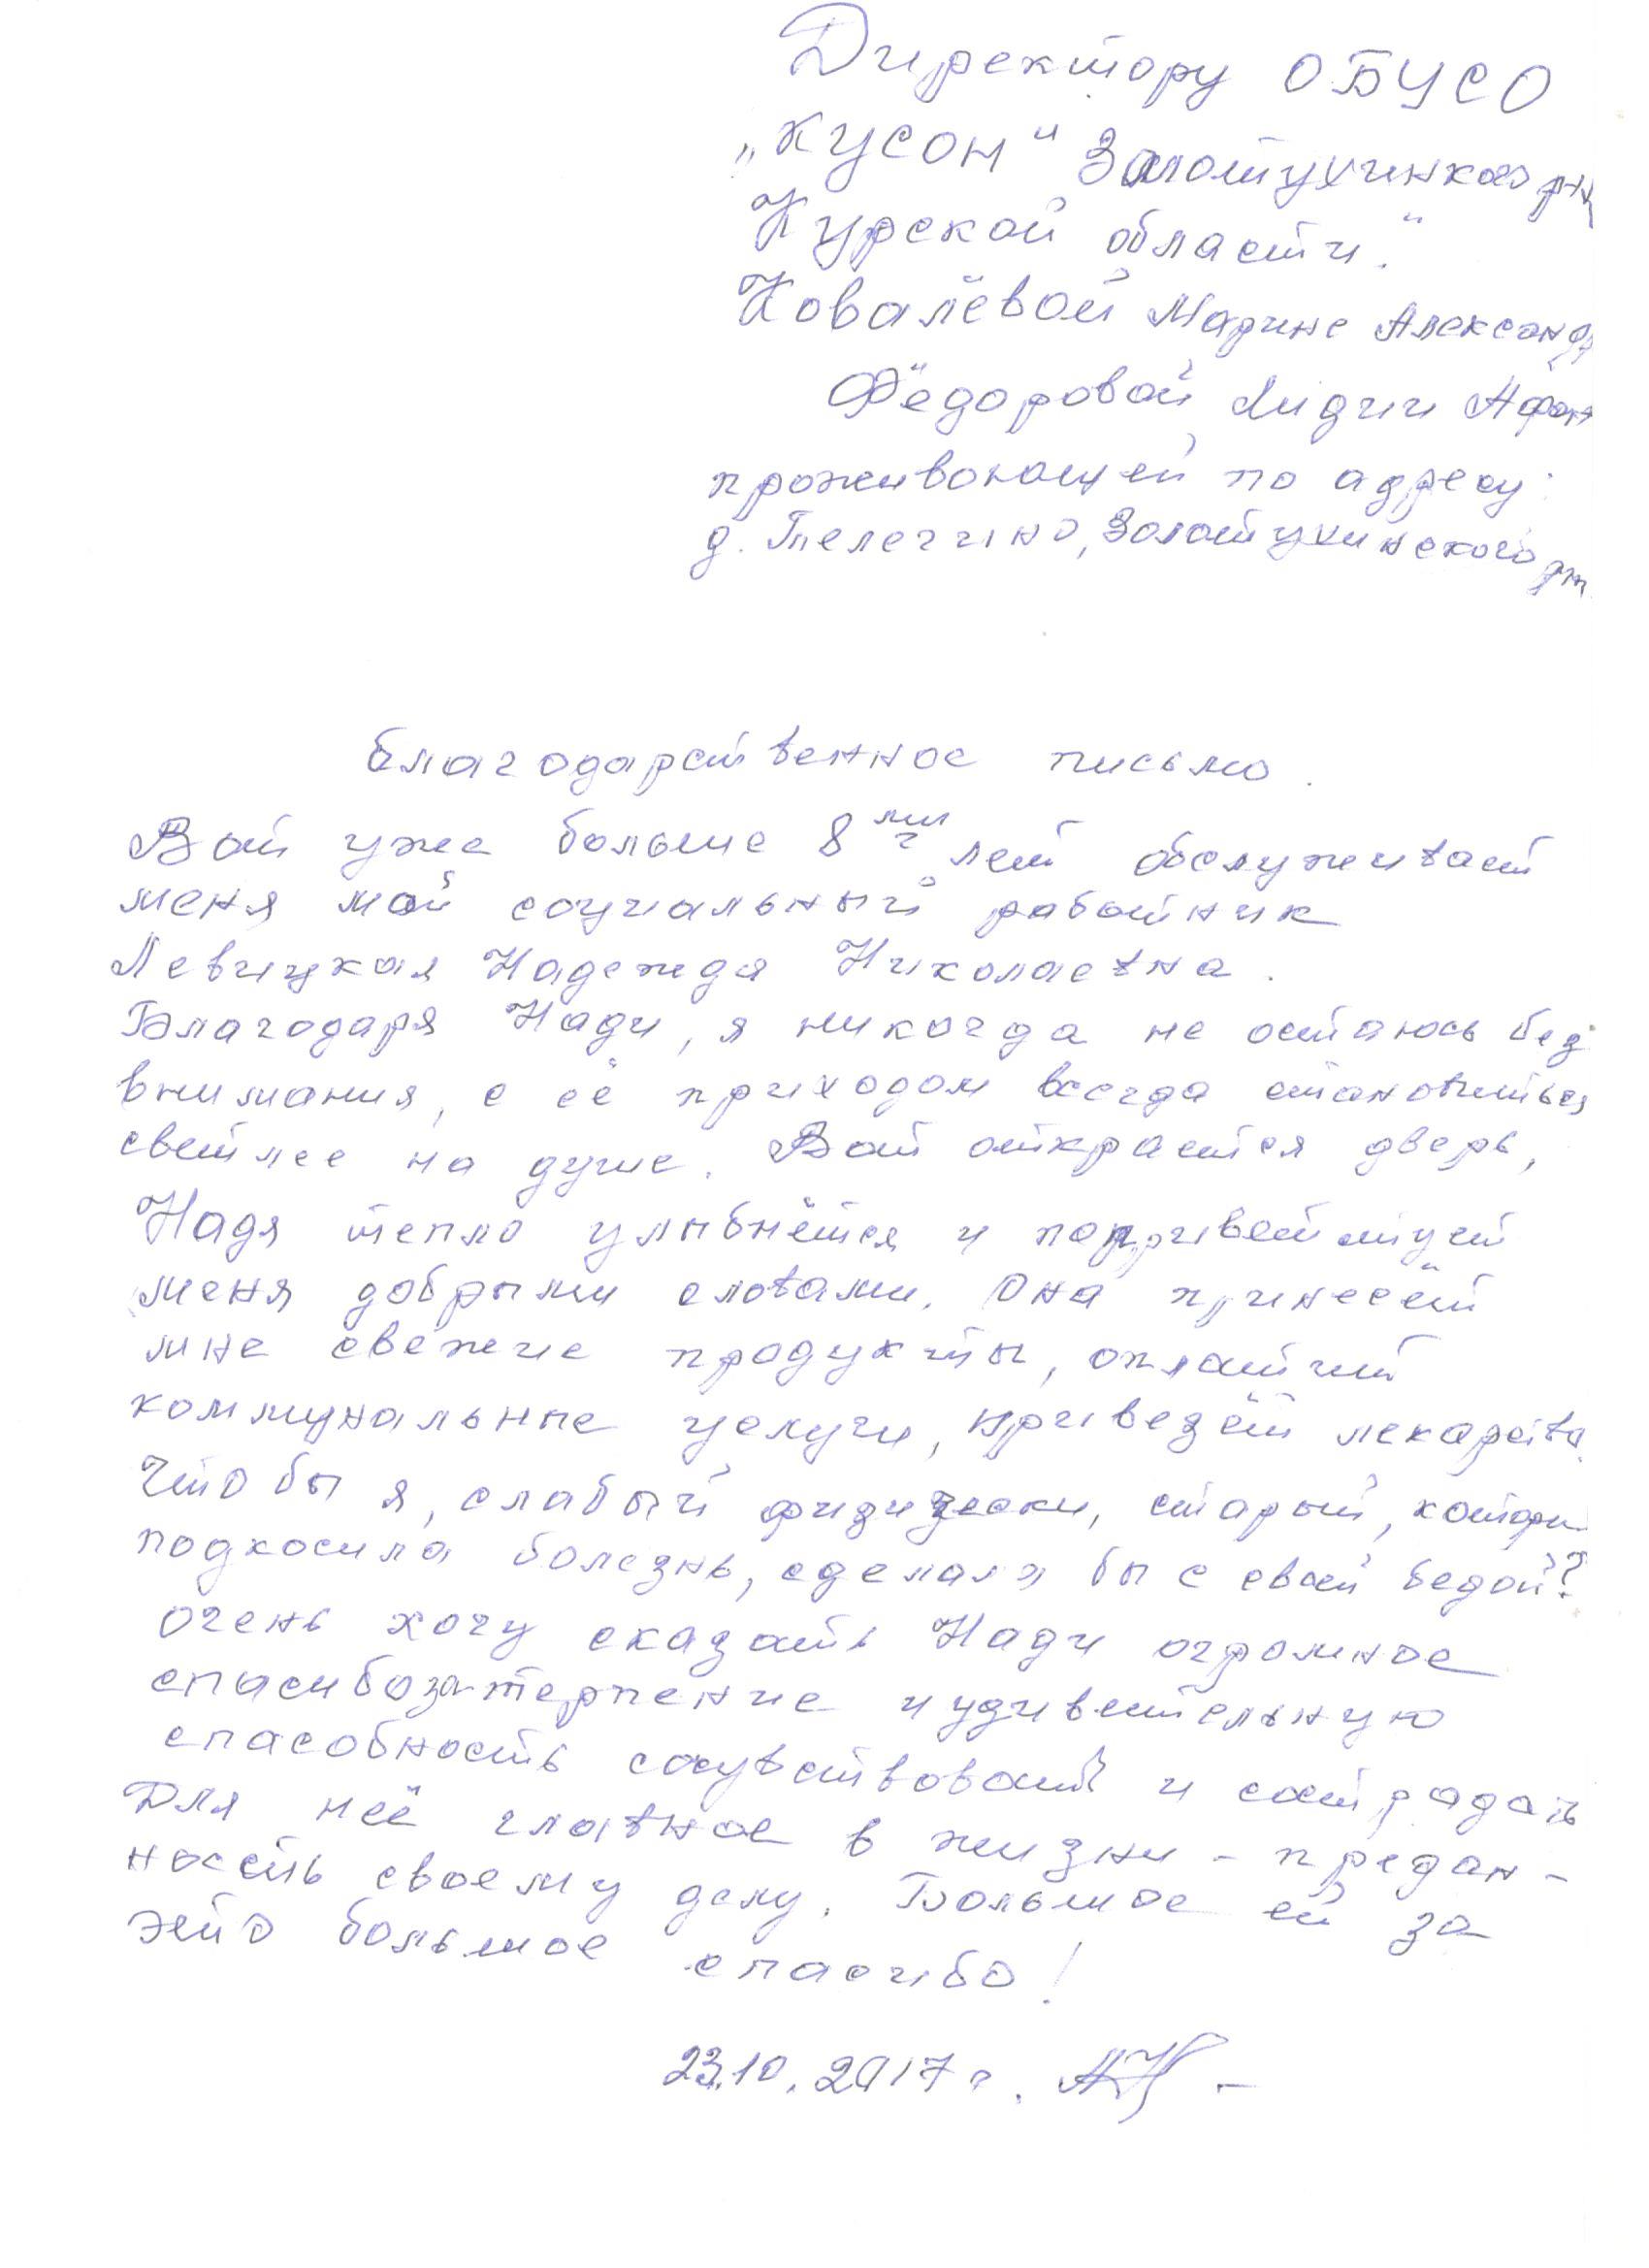 Директору ОБУСО
„КУСОН" Золотухинкого р-на
Курской области."
Ковалёвой Марине Александр
Фёдоровой Лидии Афан
проживающей по адресу:
д. Телегино, Золотухинского р-на
Благодарственное письмо.
Вот уже больше 8ми лет обслуживает
меня мой социальный работник
Левицкая Надежда Николаевна.
Благодаря Нади, я никогда не остаюсь без
внимания, с её приходом всегда становиться
светлее на душе. Вот откроется дверь,
Надя тепло улыбнётся и поприветствует
меня добрыми словами. Она принесёт
мне свежие продукты, оплатит
коммунальные услуги, привезёт лекарства.
Что бы я, слабый физически, старый, которы
подкосила болезнь, сделала бы с своей бедой?
Очень хочу сказать Нади огромное
спасибо за терпение и удивительную
способность сочувствовать и сострадать
Для неё главное в жизни - предан-
ность своему делу. Большое ей за
это большое спасибо!
23.10.2017 г.